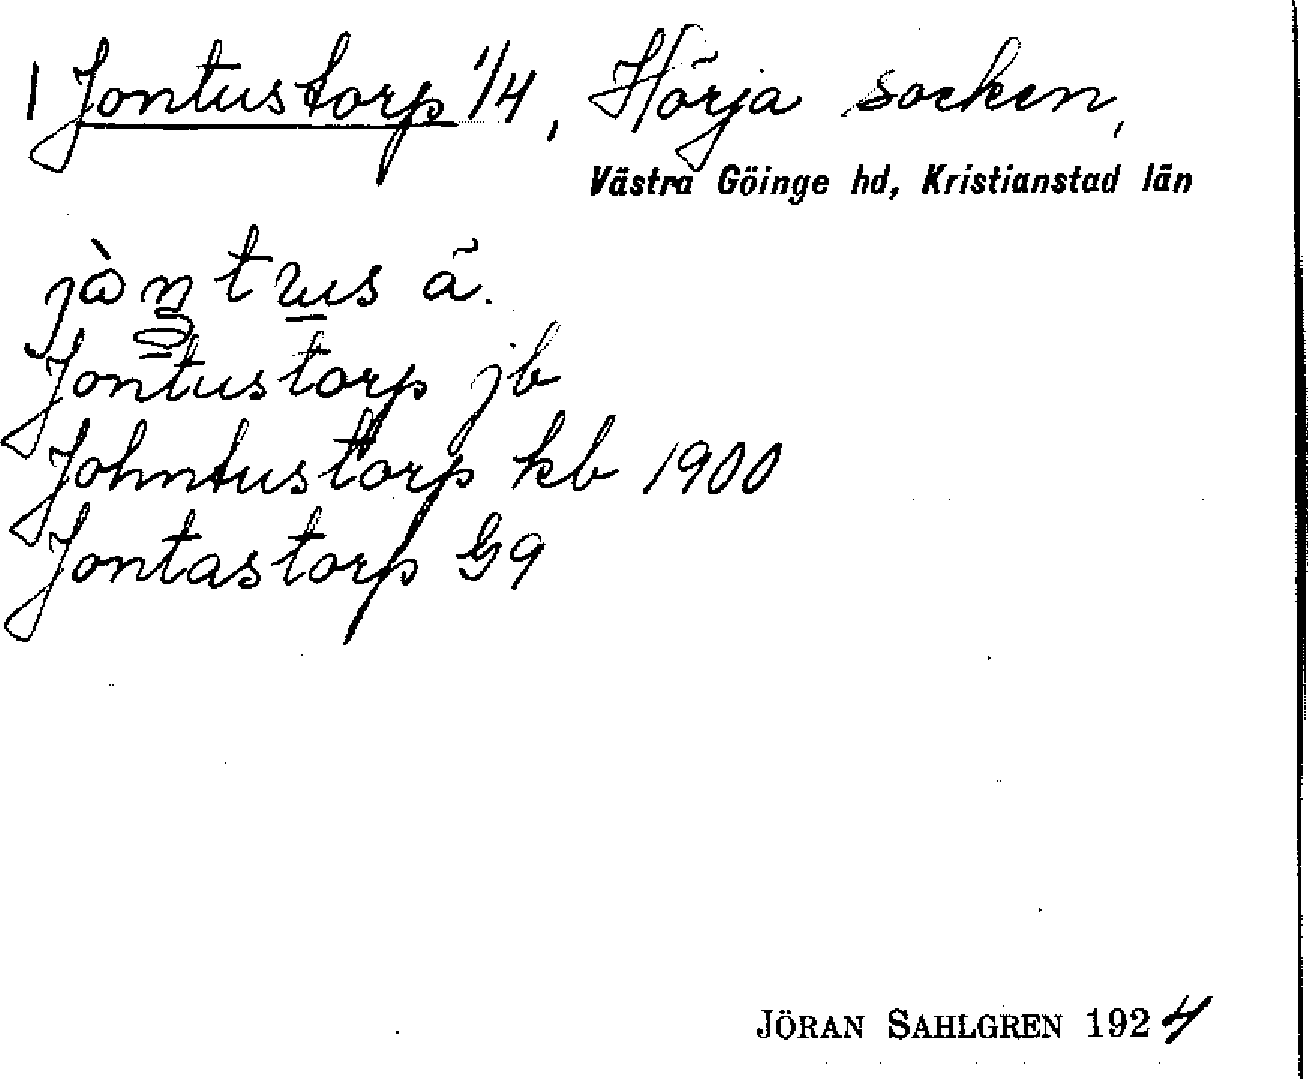 1 Jontustorp 1/4, Hörja socken,
Västra Göinge hd, Kristianstad län
jàntus ã.
Jontustorp jb
Johntustorp kb 1900
Jontastorp G9
JÖRAN SAHLGREN 1924